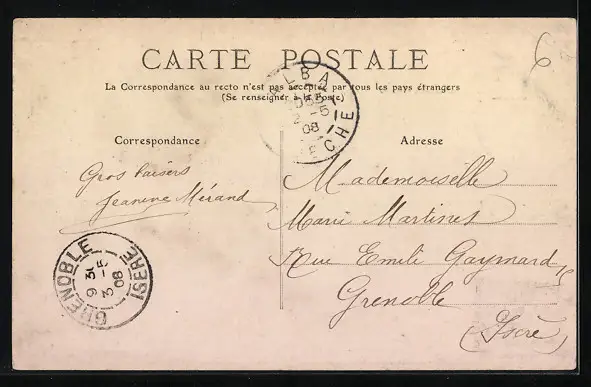 6
CARTE POSTALE
La Correspondance au recto n'est pas acceptée par tous les pays étrangers
(Se renseigner à la Poste)
Correspondance
Adresse
Gros baisers
Jeanne Mérand
Mademoiselle
Marie Martinet
Rue Emile Gaymard
Grenoble
(Isère)
GRENOBLE ISERE
9 31
3 - 5
08
ALBA
08
CHE